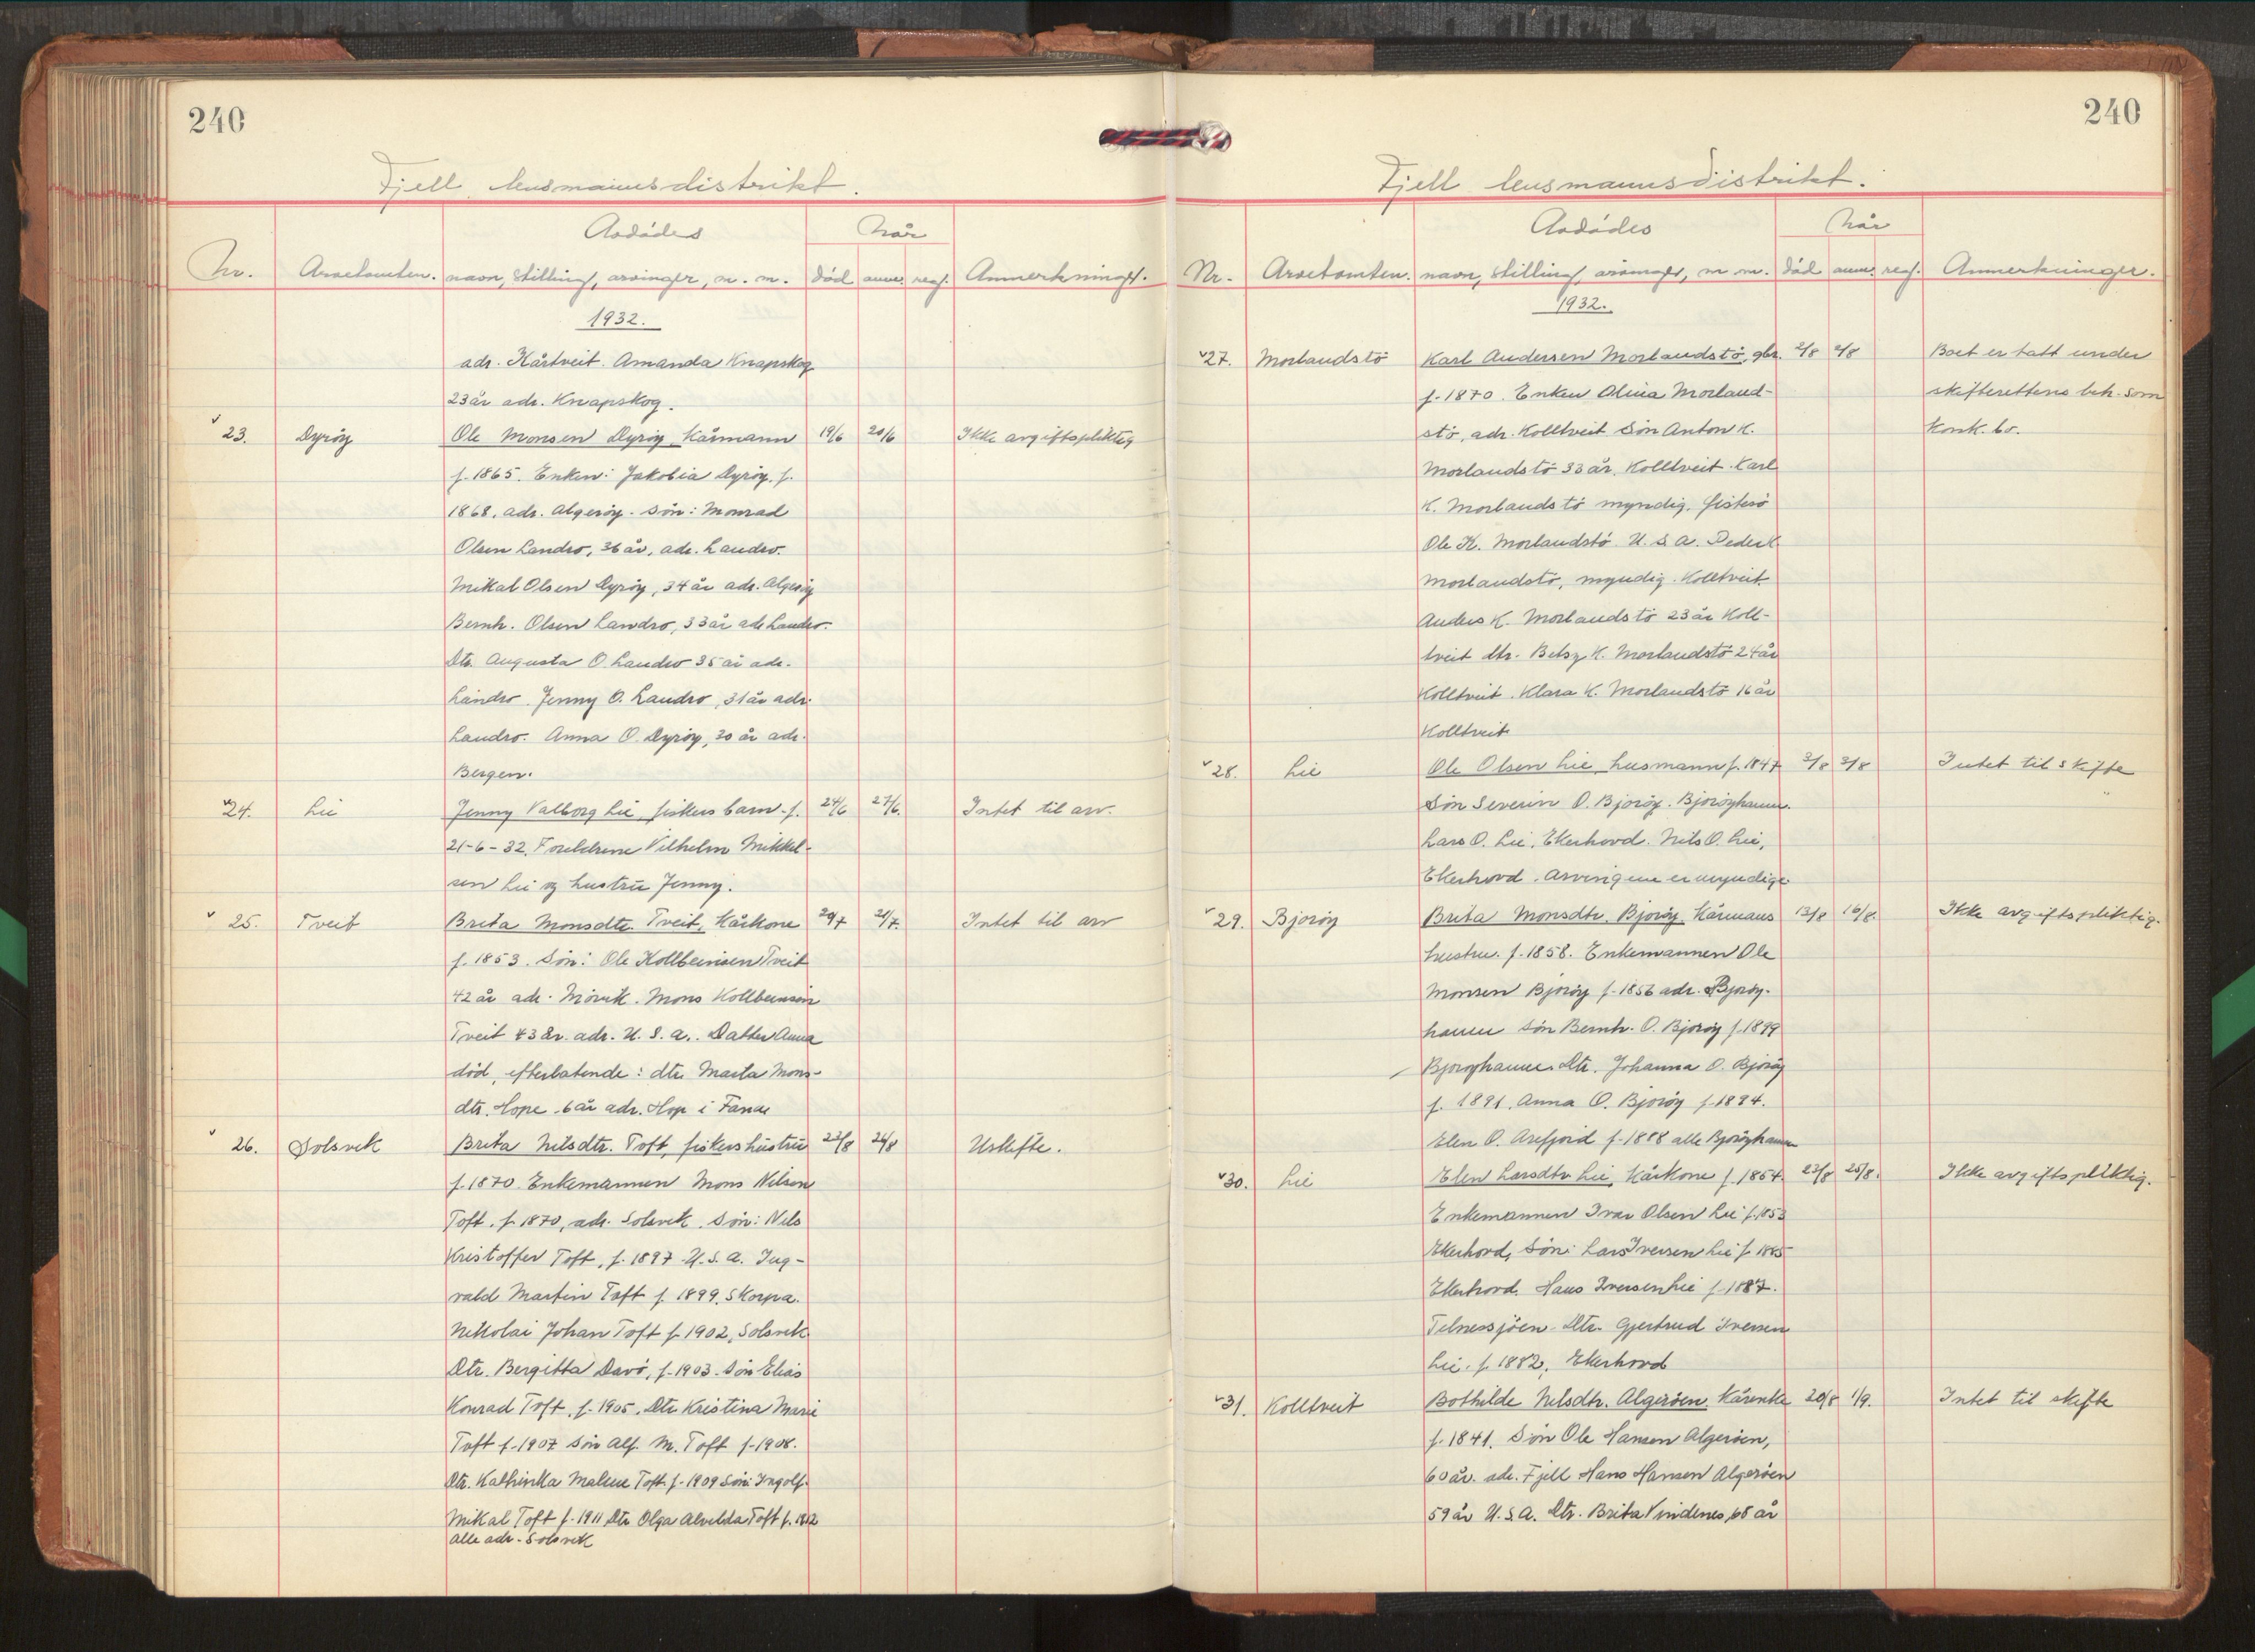 240
Fjell lensmannsdistrikt.
Avdødes
når
Nr.
Arvetomten.
navn, stilling, arvinger, m. m.
død
anm.
reg.
Anmerkninger.
1932.
adr. Kårtveit. Amanda Knapskog
23 år adr. Knapskog.
23.
Dyrøy
Ole Monsen Dyrøy kårmann
19/6
20/6
Ikke avgiftspliktig
f. 1865. Enken: Jakobia Dyrøy f.
1868, adr. Algerøy. Søn: Monrad
Olsen Landro, 36 år, adr. Landro.
Mikal Olsen Dyrøy, 34 år adr. Algerøy
Bernh. Olsen Landro, 33 år adr Landro.
Dtr. Augusta O. Landro 35 år adr.
Landro. Jenny O. Landro, 31 år adr.
Landro. Anna O. Dyrøy, 30 år adr.
Bergen.
24.
Lie
Jenny Valborg Lie, fiskers barn f.
24/6
27/6.
Intet til arv.
21-6-32. Foreldrene Vilhelm Mikkel-
sen Lie og hustru Jenny.
25.
Tveit
Brita Monsdtr. Tveit, kårkone
21/7.
Intet til arv
f. 1853. Søn: Ole Kollbeinsen Tveit
42 år adr. Mons Kollbeinsen
Tveit 43 år. adr. U. S. A. Datter Anna
død, efterlatende: dtr. Marta Mons-
dtr. Hope 6 år adr. Hop i Fane
26.
Solsvik
Brita Nilsdtr. Toft, fiskers hustru
23/8
26/8
Uskifte.
f. 1870. Enkemannen Mons Nilsen
Toft. f. 1870, adr. Solsvik. Søn: Nils
Kristoffer Toft, f. 1897 U. S. A. Ing-
vald Martin Toft f. 1899. Skorpa.
Nikolai Johan Toft f. 1902, Solsvik
Dtr. Bergitta Davø, f. 1903. Søn Elias
Konrad Toft, f. 1905. Dtr Kristina Marie
Toft f. 1907 Søn Alf. M. Toft f. 1908.
Dtr. Kathinka Malene Toft f. 1909 Søn: Ingolf
Mikal Toft f. 1911 Dtr Olga Alvilda Toft f. 1912
Alle adr. Solsvik
240
Fjell lensmannsdistrikt.
Avdødes
når
Nr.
Arvetomten.
navn, stilling, arvinger, m m.
død
anm.
reg.
Anmerkninger.
1932.
27.
Morlandstø
Karl Andersen Morlandstø, gbr.
2/8
Boet er tatt under
f. 1870. Enken Olina Morland-
skifterettens beh. som
stø, adr. Kolltveit Søn Anton K.
konk. bo.
Morlandstø 33 år. Kolltveit. Karl
K. Morlandstø myndig.
Ole K. Morlandstø U. S. A. Peder K.
Morlandstø, myndig. Kolltveit
Anders K. Morlandstø 23 år Koll-
tveit dtr. Betsy K. Morlandstø 24 år
Kolltveit. Klara K. Morlandstø 16 år
Kolltveit
28.
Lie
Ole Olsen Lie, husmann f. 1847
3/8
3/8
Intet til skifte
Søn Severin O. Bjorøy. Bjorøyhamn.
Lars O. Lie, Ekerhovd. Nils O. Lie,
Ekerhovd. Arvingene er myndige
29.
Bjorøy
Brita Monsdtr. Bjorøy kårmans
13/8
16/8.
Ikke avgiftspliktig.
hustru. f. 1858. Enkemannen Ole
Monsen Bjorøy f. 1856 adr. Bjorøy-
hamn Søn Bernh. O. Bjorøy f. 1899
Bjorøyhamn. Dtr. Johanna O. Bjorøy
f. 1891. Anna O. Bjorøy f. 1894.
Elen O. Arefjord f. 1888 alle Bjorøyhamn
30.
Lie
Elen Larsdtr Lie, kårkone f. 1854.
23/8
25/8.
Ikke avgiftspliktig.
Enkemannen Ivar Olsen Lie f. 1853
Ekerhovd, Søn: Lars Iversen Lie f. 1885
Ekerhovd. Hans Iversen Lie f. 1887.
Telnessjøen Dtr. Gjertrud Iversen
Lie. f. 1882, Ekerhovd
31.
Kolltveit
Bothilde Nilsdtr. Algerøen. kårenke
20/8
1/9.
Intet til skifte
f. 1841. Søn Ole Hansen Algerøen,
60 år. adr. Fjell Hans Hansen Algerøen
59 år U. S. A. Dtr. Brita Vindenes, 65 år